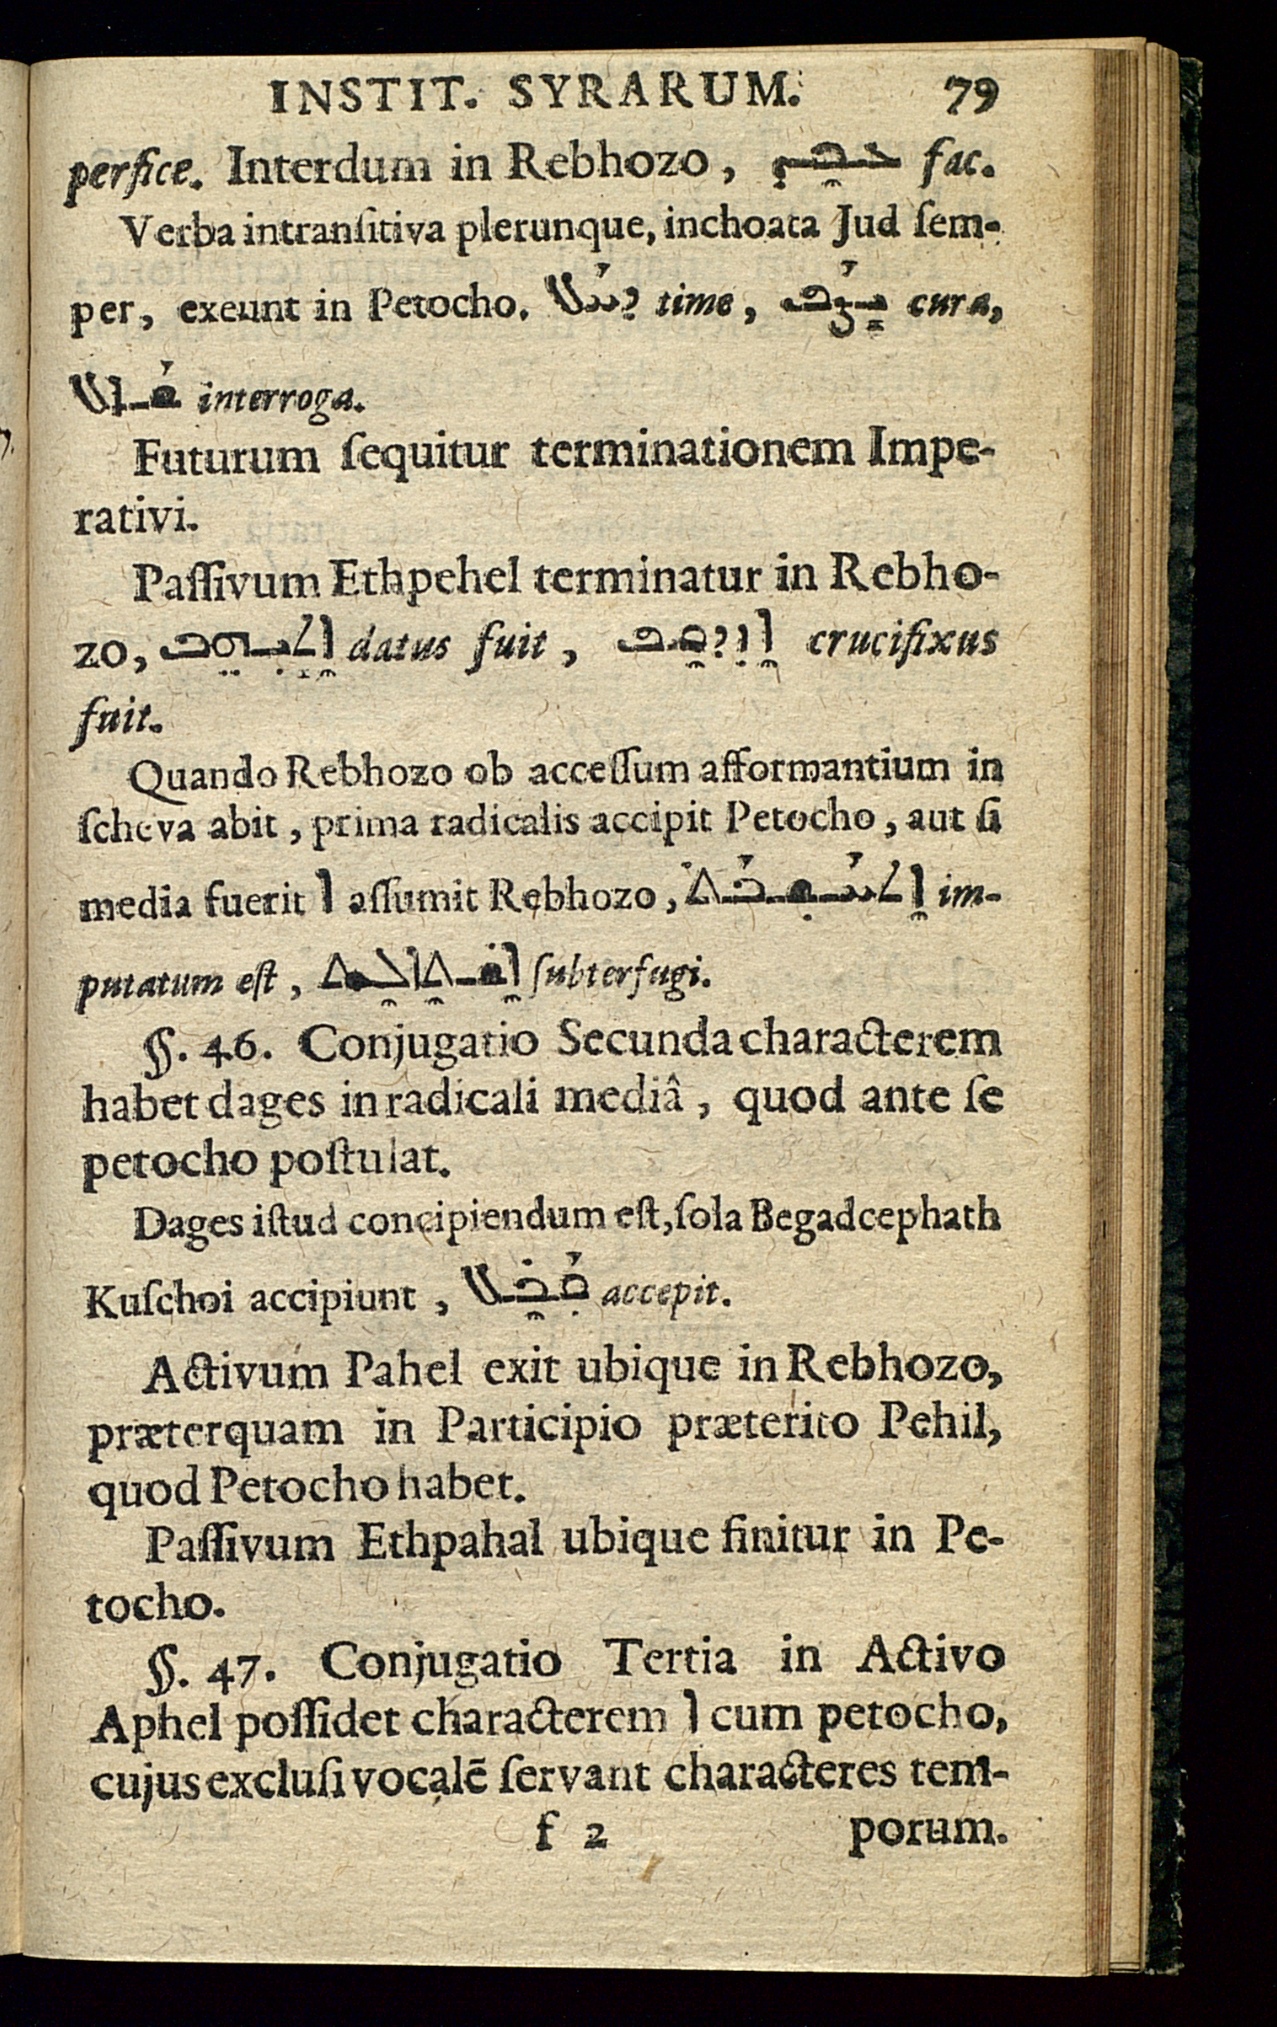 INSTIT. SYRARUM. 79
perfice. Interdum in Rebhozo, ܥܒܶܕ fac.
Verba intransitiva plerunque, inchoata Jud sem-
per, exeunt in Petocho. ܕܚܰܠ time, ܝܨܰܦ cura,
ܫܰܐܠ interroga.
Futurum sequitur terminationem Impe-
rativi.
Passivum Ethpehel terminatur in Rebho-
zo, ܐܶܬܝܗܶܒ datus fuit, ܐܶܙܕܩܶܦ crucifixus
fuit.
Quando Rebhozo ob accessum afformantium in
scheva abit, prima radicalis accipit Petocho, aut si
media fuerit ܐ assumit Rebhozo, ܐܶܬܚܰܫܒܰܬ im-
putatum est, subterfugi.
§. 46. Conjugatio Secunda characterem
habet dages in radicali mediâ, quod ante se
petocho postulat.
Dages istud concipiendum est, sola Begadcephath
Kuschoi accipiunt, ܩܰܒܶܠ accepit.
Activum Pahel exit ubique in Rebhozo,
præterquam in Participio præterito Pehil,
quod Petocho habet.
Passivum Ethpahal ubique finitur in Pe-
tocho.
§. 47. Conjugatio Tertia in Activo
Aphel possidet characterem ܐ cum petocho,
cujus exclusi vocalē servant characteres tem-
f 2 porum.